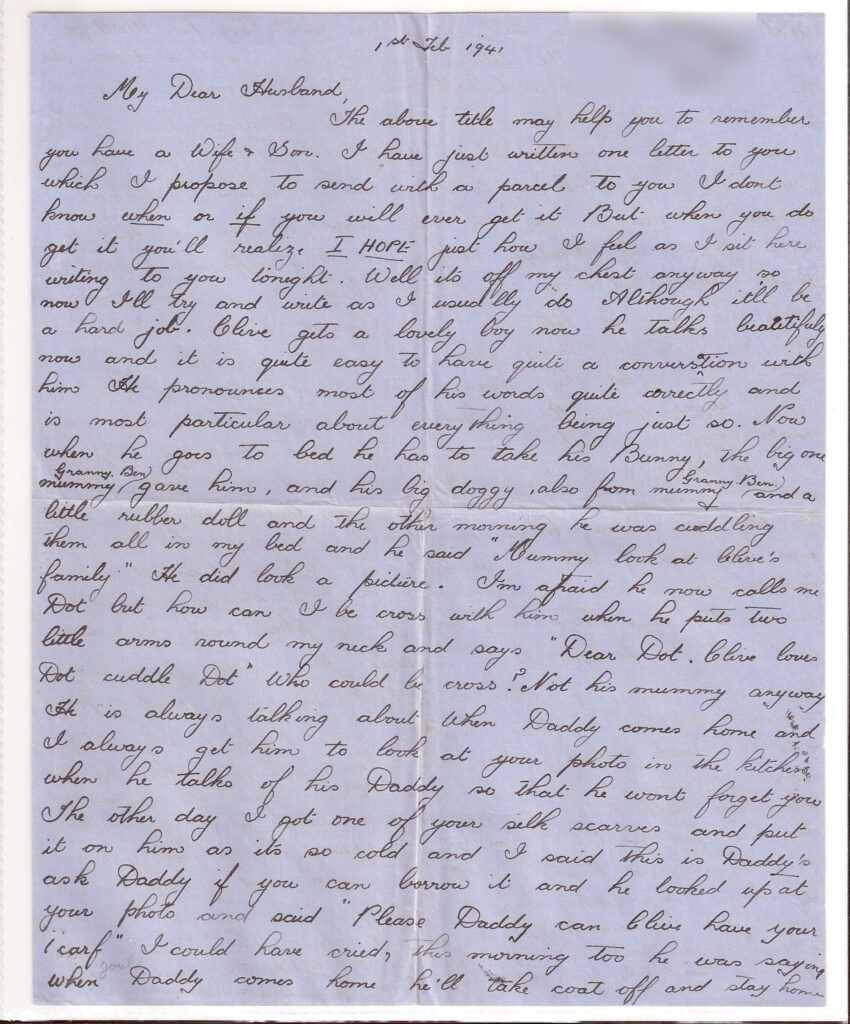 1st Feb 1941
My Dear Husband,
The above title may help you to remember
you have a Wife & Son. I have just written one letter to you
which I propose to send with a parcel to you I dont
know when or if you will ever get it But when you do
get it you'll realize, I HOPE just how I feel as I sit here
writing to you tonight. Well its off my chest anyway so
now I'll try and write as I usually do Although itll be
a hard job. Clive gets a lovely boy now he talks beautifuly
now and it is quite easy to have quite a conversation with
him He pronounces most of his words quite correctly and
is most particular about everything being just so. Now
when he goes to bed he has to take his Bunny, the big one
mummy (Granny. Ben) gave him, and his big doggy, also from mummy (Granny. Ben.) and a
little rubber doll and the other morning he was cuddling
them all in my bed and he said "Mummy look at Clive's
family" He did look a picture. I'm afraid he now calls me
Dot but how can I be cross with him when he puts two
little arms round my neck and says "Dear Dot. Clive loves
Dot cuddle Dot" Who could be cross? Not his mummy anyway
He is always talking about When Daddy comes home and
I always get him to look at your photo in the kitchen
when he talks of his Daddy so that he wont forget you
The other day I got one of your silk scarves and put
it on him as its so cold and I said this is Daddy's
ask Daddy if you can borrow it and he looked up at
your photo and said "Please Daddy can Clive have your
'carf" I could have cried, this morning too he was saying
when Daddy comes home he'll take coat off and stay home